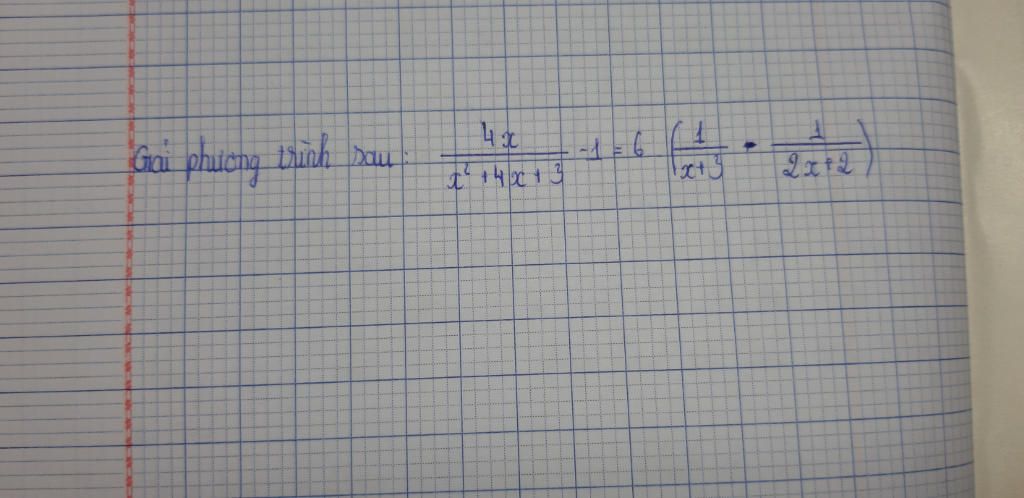 Giải phương trình sau: \frac{4x}{x^2+4x+3} -1 = 6 \left(\frac{1}{x+3} - \frac{1}{2x+2}\right)